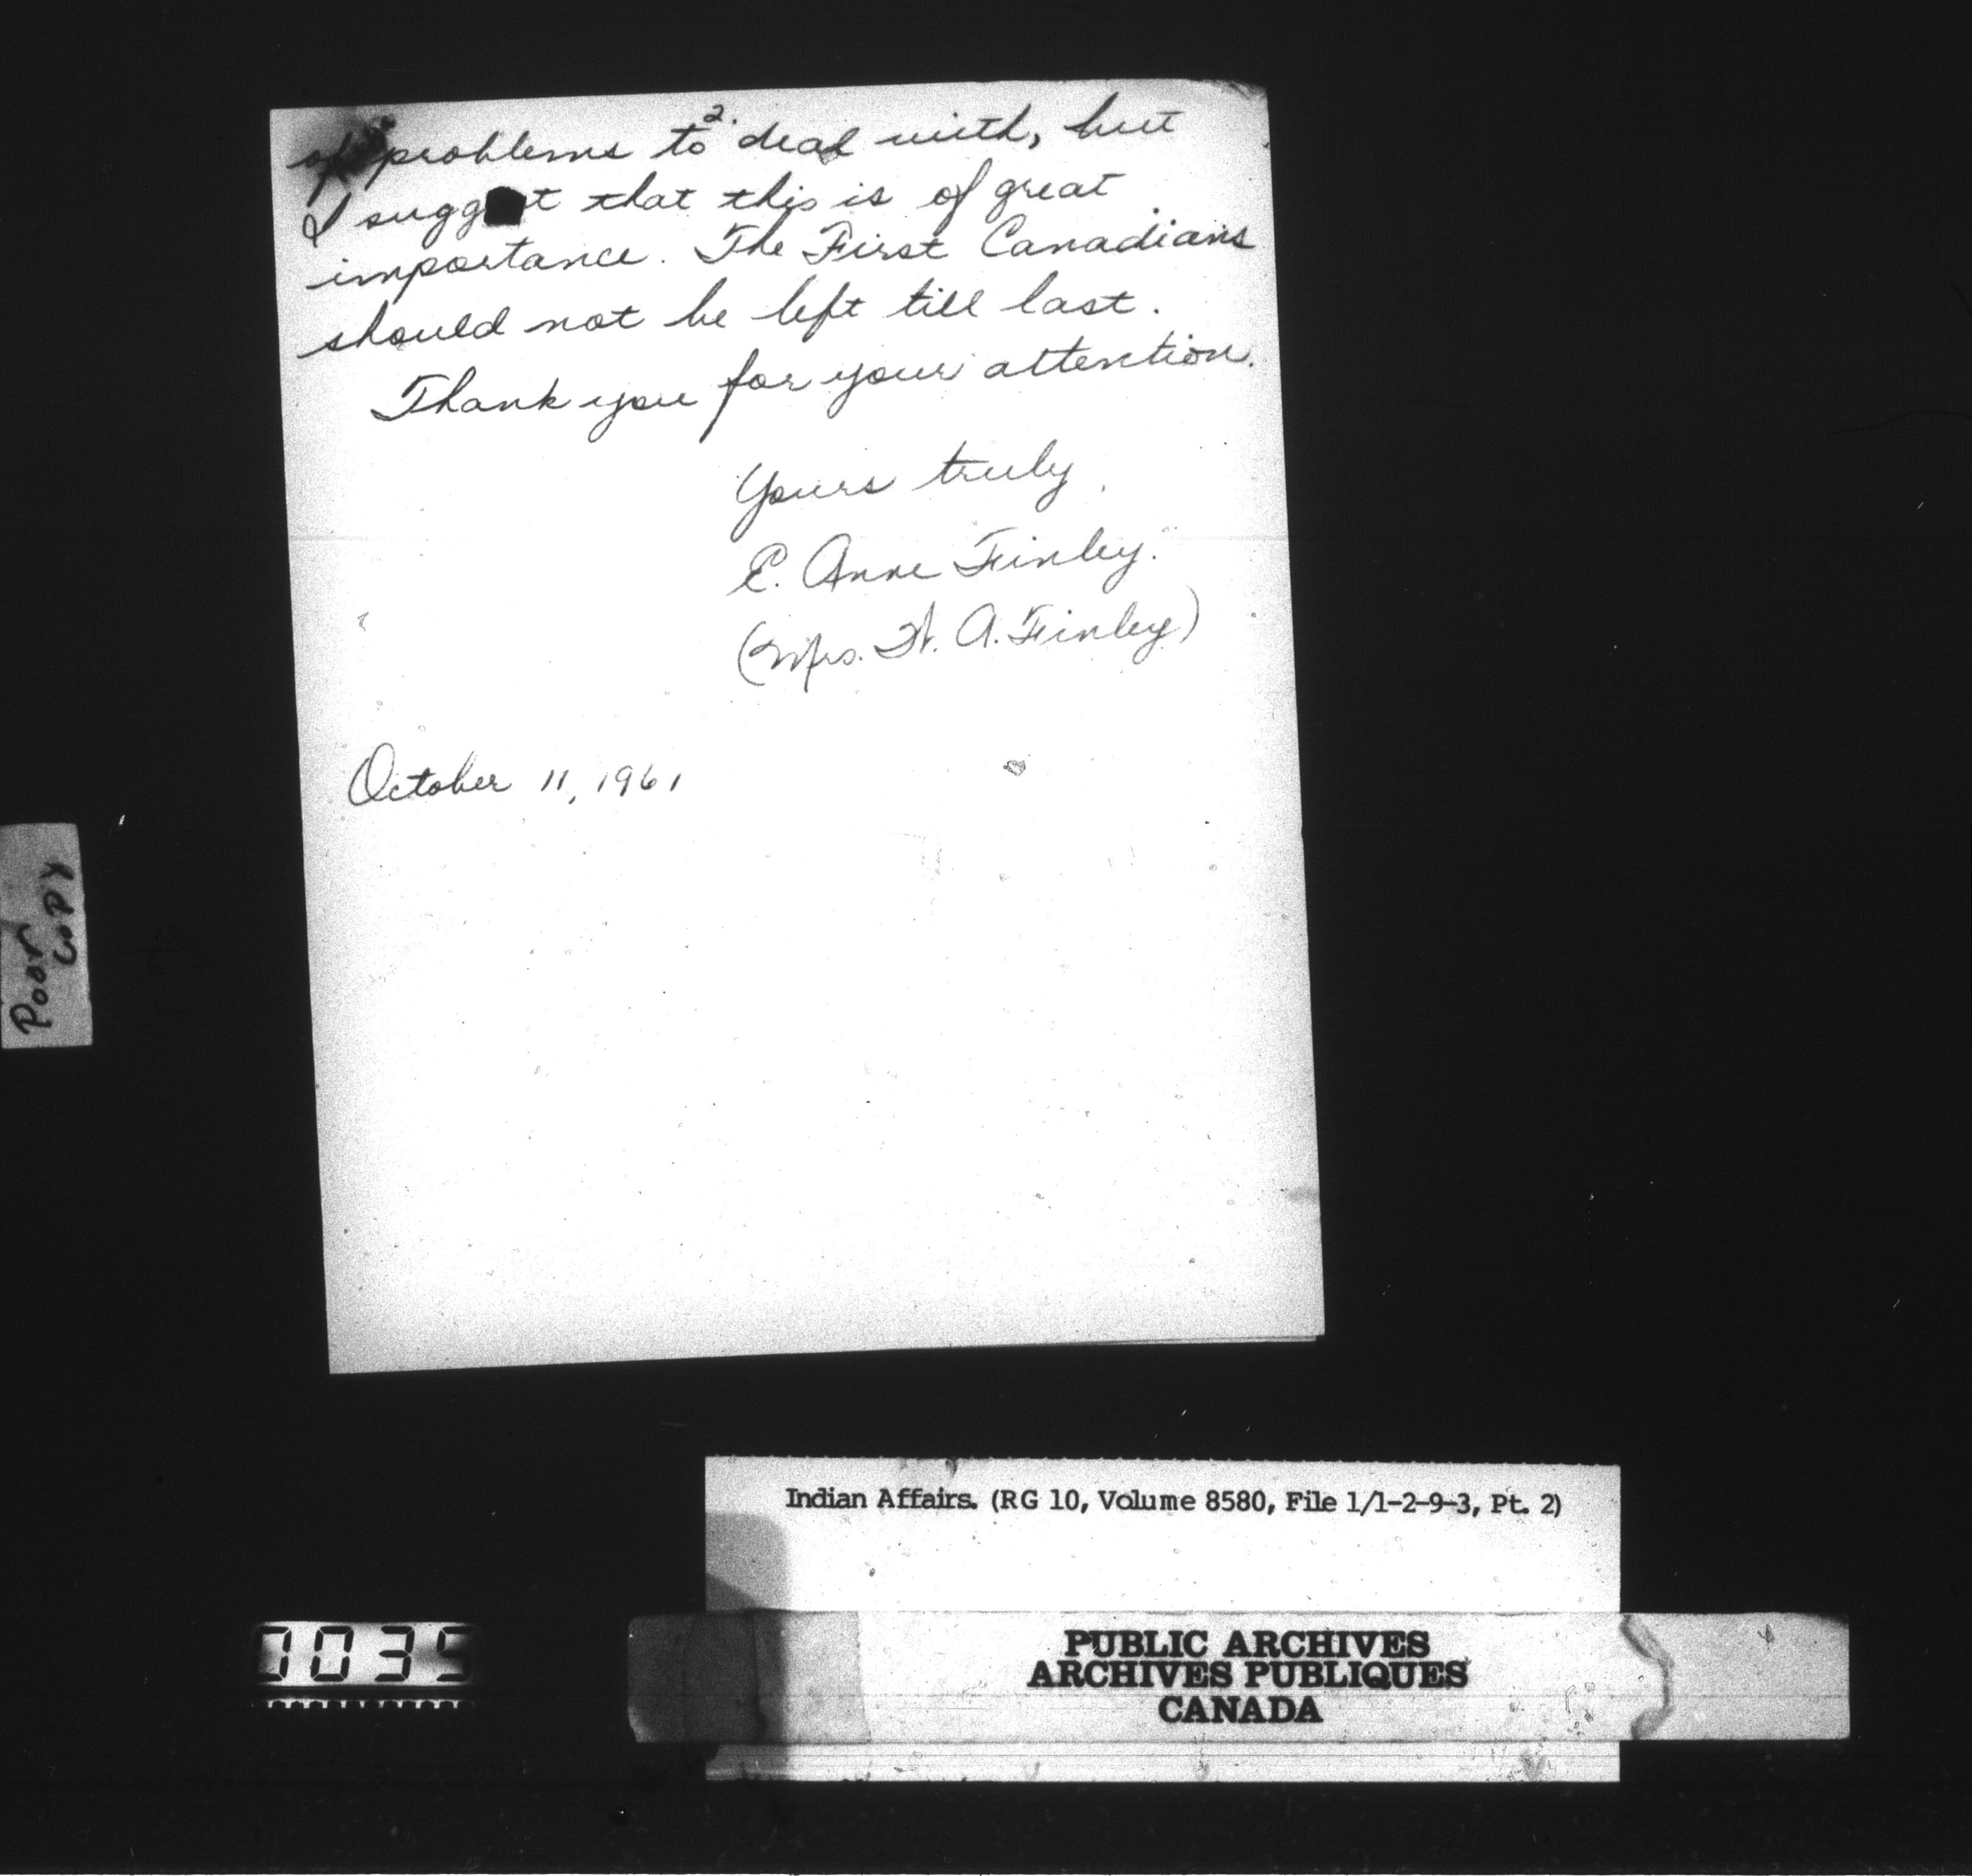 2.
of problems to deal with, but
I suggest that this is of great
importance. The First Canadians
should not be left till last.
Thank you for your attention.
Yours truly,
E. Anne Finley.
(Mrs. A. Finley)
October 11, 1961
Poor
COPY
Indian Affairs. (RG 10, Volume 8580, File 1/1-2-9-3, Pt. 2)
0035
PUBLIC ARCHIVES
ARCHIVES PUBLIQUES
CANADA